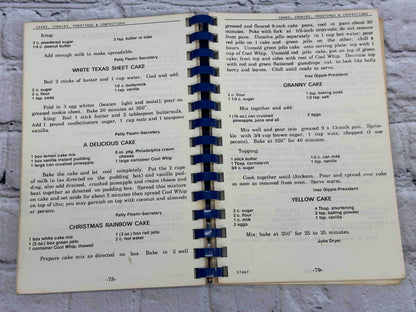 CAKES, COOKIES, FROSTINGS & CONFECTIONS
Icing:
2 c. powdered sugar
1/4 c. peanut butter
2 tbsp. butter or oleo
Add enough milk to make spreadable.
Patty Floehr-Secretary
WHITE TEXAS SHEET CAKE
Boil 2 sticks of butter and 1 cup water. Cool and add:
2 c. sugar
2 c. flour
1 tsp. soda
1/2 c.
1 tsp.
Fold in 3 egg whites (beaten light and moist); pour on
greased cookie sheet. Bake 20 minutes at 350°.
Icing: Boil 1 stick butter and 2 tablespoons buttermilk.
Add 1 pound confectioners sugar, 1 cup nuts and 1 teaspoon
vanilla.
Patty Floehr-Secretary
A DELICIOUS CAKE
1 box lemon cake mix
1 box vanilla instant pudding
1 large can crushed pineapple
8 oz. pkg. Philadelphia cream cheese
1 large container Cool Whip
Bake the cake and let cool completely. Put the 2 cups
of milk in (as directed on the pudding box) and vanilla pud-
ding, also add drained, crushed pineapple and cream cheese and
beat together as directed on pudding box. Spread this mixture
on cake and set aside for about 5 minutes then spread Cool Whip
on top of this; you may garnish on top with coconut and almonds
or pecans.
Patty Floehr-Secretary
CHRISTMAS RAINBOW CAKE
1 box white cake mix
1 (3 oz.) box green jello
1 container Cool Whip, thawed
1 (3 oz.) box red jello
2 c. hot water
Prepare cake mix as directed on box. Bake in 2 well
-78-
CAKES, COOKIES, FROSTINGS & CONFECTIONS
greased and floured 9-inch cake pans. cool in pans about 20
minutes. Poke with fork at 1/2-inch intervals; do not remove
from pans. Dissolve jello separately in 1 cup hot water; pour
red jello on 1 cake and green jello on the other; chill 4
hours. Unmold green jello cake onto serving plate; top with 1
cup of Cool Whip. Unmold red jello cake, put on top of green
cake; frost top and sides with rest of Cool Whip. Decorate top
with red and green flattened gumdrops cut to look like holly
berry and leaves. Chill until ready to serve.
Inez Gipple-President
GRANNY CAKE
2 c. flour
1 1/2 c. sugar
1 tsp. baking soda
1/2 tsp. salt
Mix together and add:
1 (16 oz.) can crushed
pineapple, juice and all
2 eggs
Mix well and pour into greased 9 x 13-inch pan. Sprink-
le with 3/4 cup brown sugar, 1 cup nuts, chopped (I use
pecans). Bake at 350° for 40 minutes.
Topping:
1 stick butter
1 Tbsp. cornstarch
3/4 c. sugar
1/2 c. can milk
1 tsp. vanilla
Cook together until thickens. Pour and spread over cake
as soon as removed from oven. Serve warm.
Inez Gipple-President
YELLOW CAKE
2 c. sugar
2 c. flour
1 c. milk
2 eggs
4 Tbsp. shortening
2 tsp. baking powder
1 tsp. vanilla
Mix; bake at 350° for 25 to 35 minutes.
Julia Dryer
57487
-79-